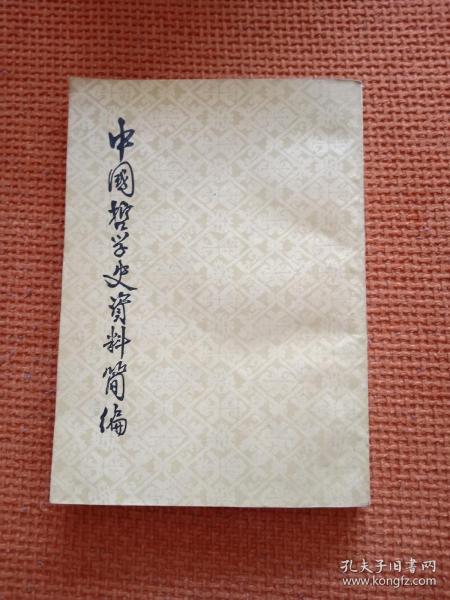 中國哲学史資料简编
孔夫子旧书网
www.kongfz.com